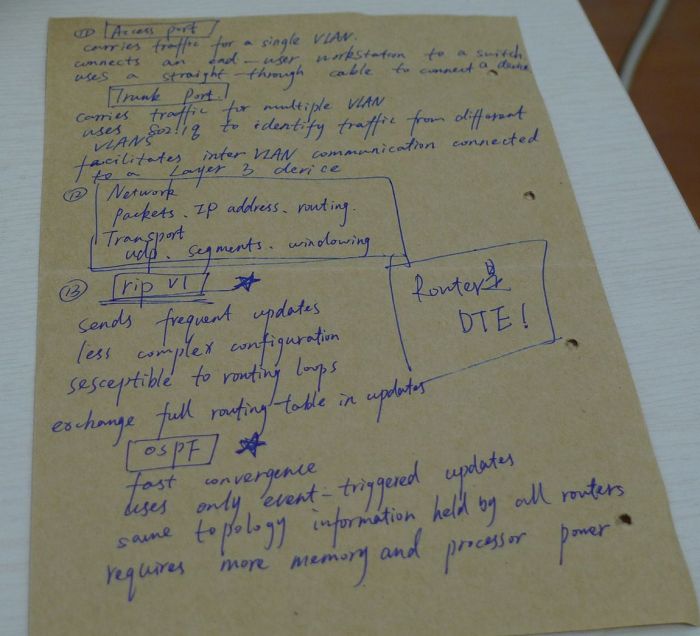 ⑪ Access port
carries traffic for a single VLAN.
connects an end-user workstation to a switch
uses a straight-through cable to connect a device
Trunk Port.
carries traffic for multiple VLAN
uses 802.1q to identify traffic from different
VLANS
facilitates inter VLAN communication connected
to a Layer 3 device
⑫ Network
Packets、IP address、routing.
Transport
udp、segments、windowing
⑬ rip v1
sends frequent updates
less complex configuration
sesceptible to routing loops
exchange full routing-table in updates
Router是
DTE!
OSPF
fast convergence
uses only event-triggered updates
same topology information held by all routers
requires more memory and processor power